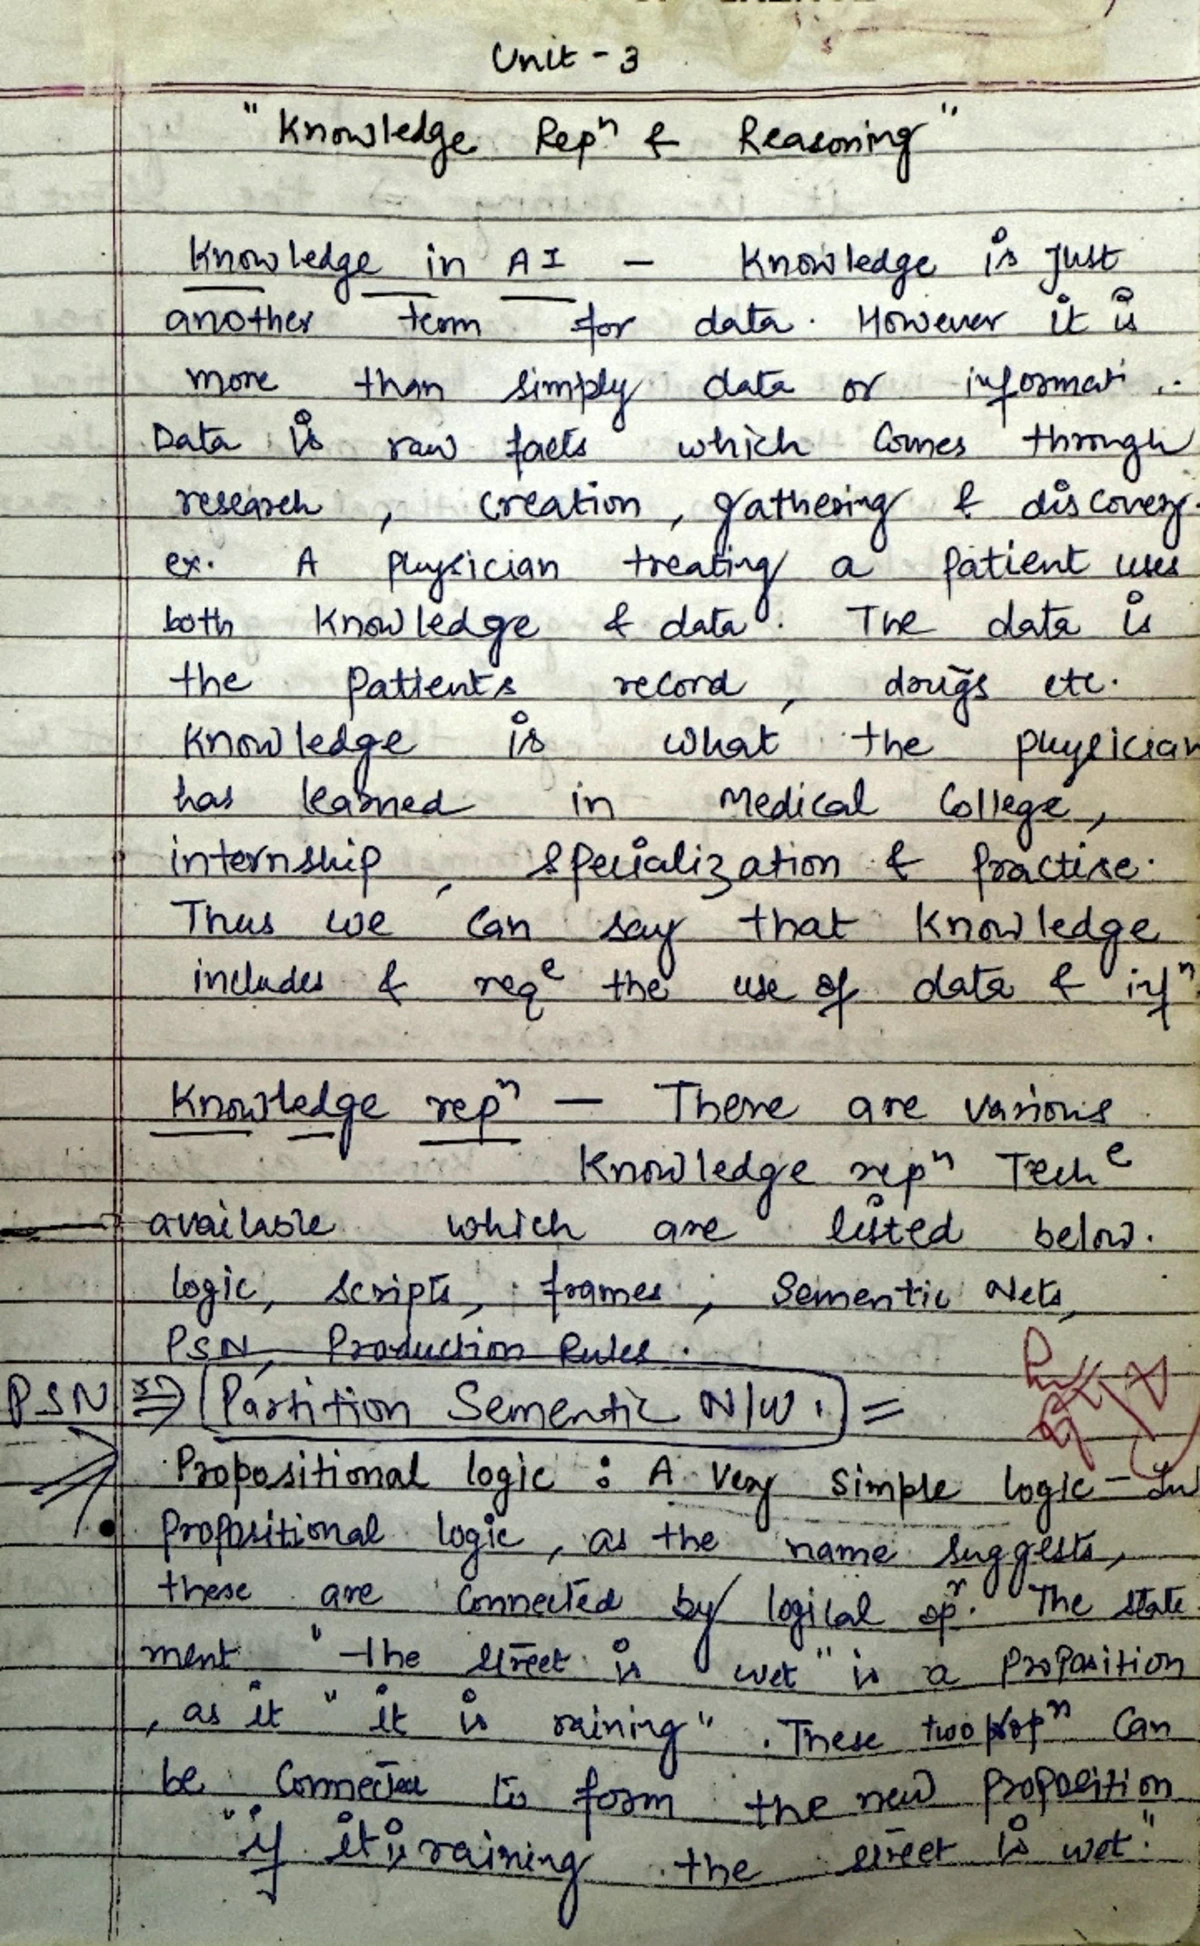 Unit - 3
"Knowledge Repⁿ & Reasoning"
Knowledge in AI — Knowledge is Just
another term for data. However it is
more than simply data or informati
Data is raw facts which Comes through
research, creation, gathering & discovery.
ex. A physician treating a patient uses
both Knowledge & data. The data is
the patients record, drugs etc.
Knowledge is what the physician
has learned in Medical College,
internship, specialization & Practise.
Thus we Can say that Knowledge
includes & reqᵉ the use of data & infⁿ
Knowledge repⁿ — There are various
Knowledge repⁿ Techᵉ
available which are listed below.
logic, scripts, frames, Sementic Nets,
PSN, Production Rules.
PSN ⇒ Partition Sementic N/W. =
Propositional logic : A Very Simple logic - In
Propositional logic, as the name suggests,
these are Connected by logical opʳ. The state
ment "the street is wet" is a Proposition
, as it "it is raining". These two propⁿ Can
be Connected to form the new proposition
"if it is raining the street is wet."